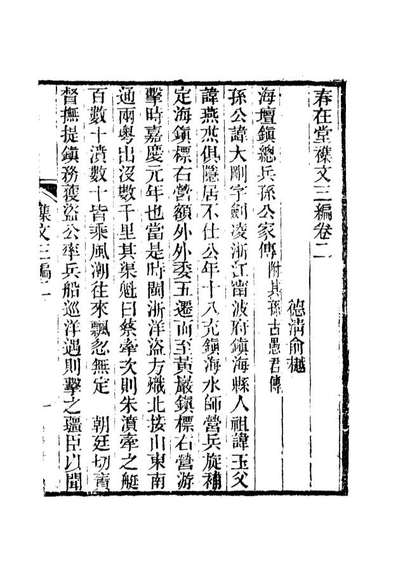 春在堂襍文三編卷二
德清俞樾
海壇鎮總兵孫公家傳附其孫古愚君傳
孫公諱大剛字劍凌浙江甯波府鎮海縣人祖諱玉父
諱燕杰俱隱居不仕公年十八充鎮海水師營兵旋補
定海鎮標右營額外外委五遷而至黃巖鎮標右營游
擊時嘉慶元年也當是時閩浙洋盜方熾北接山東南
通兩粵出沒數千里其渠魁曰蔡牽次則朱濆牽之艇
百數十濆數十皆乘風潮往來飄忽無定　朝廷切責
督撫提鎮務獲盜公率兵船巡洋遇則擊之疆臣以聞
襍文三編二
一